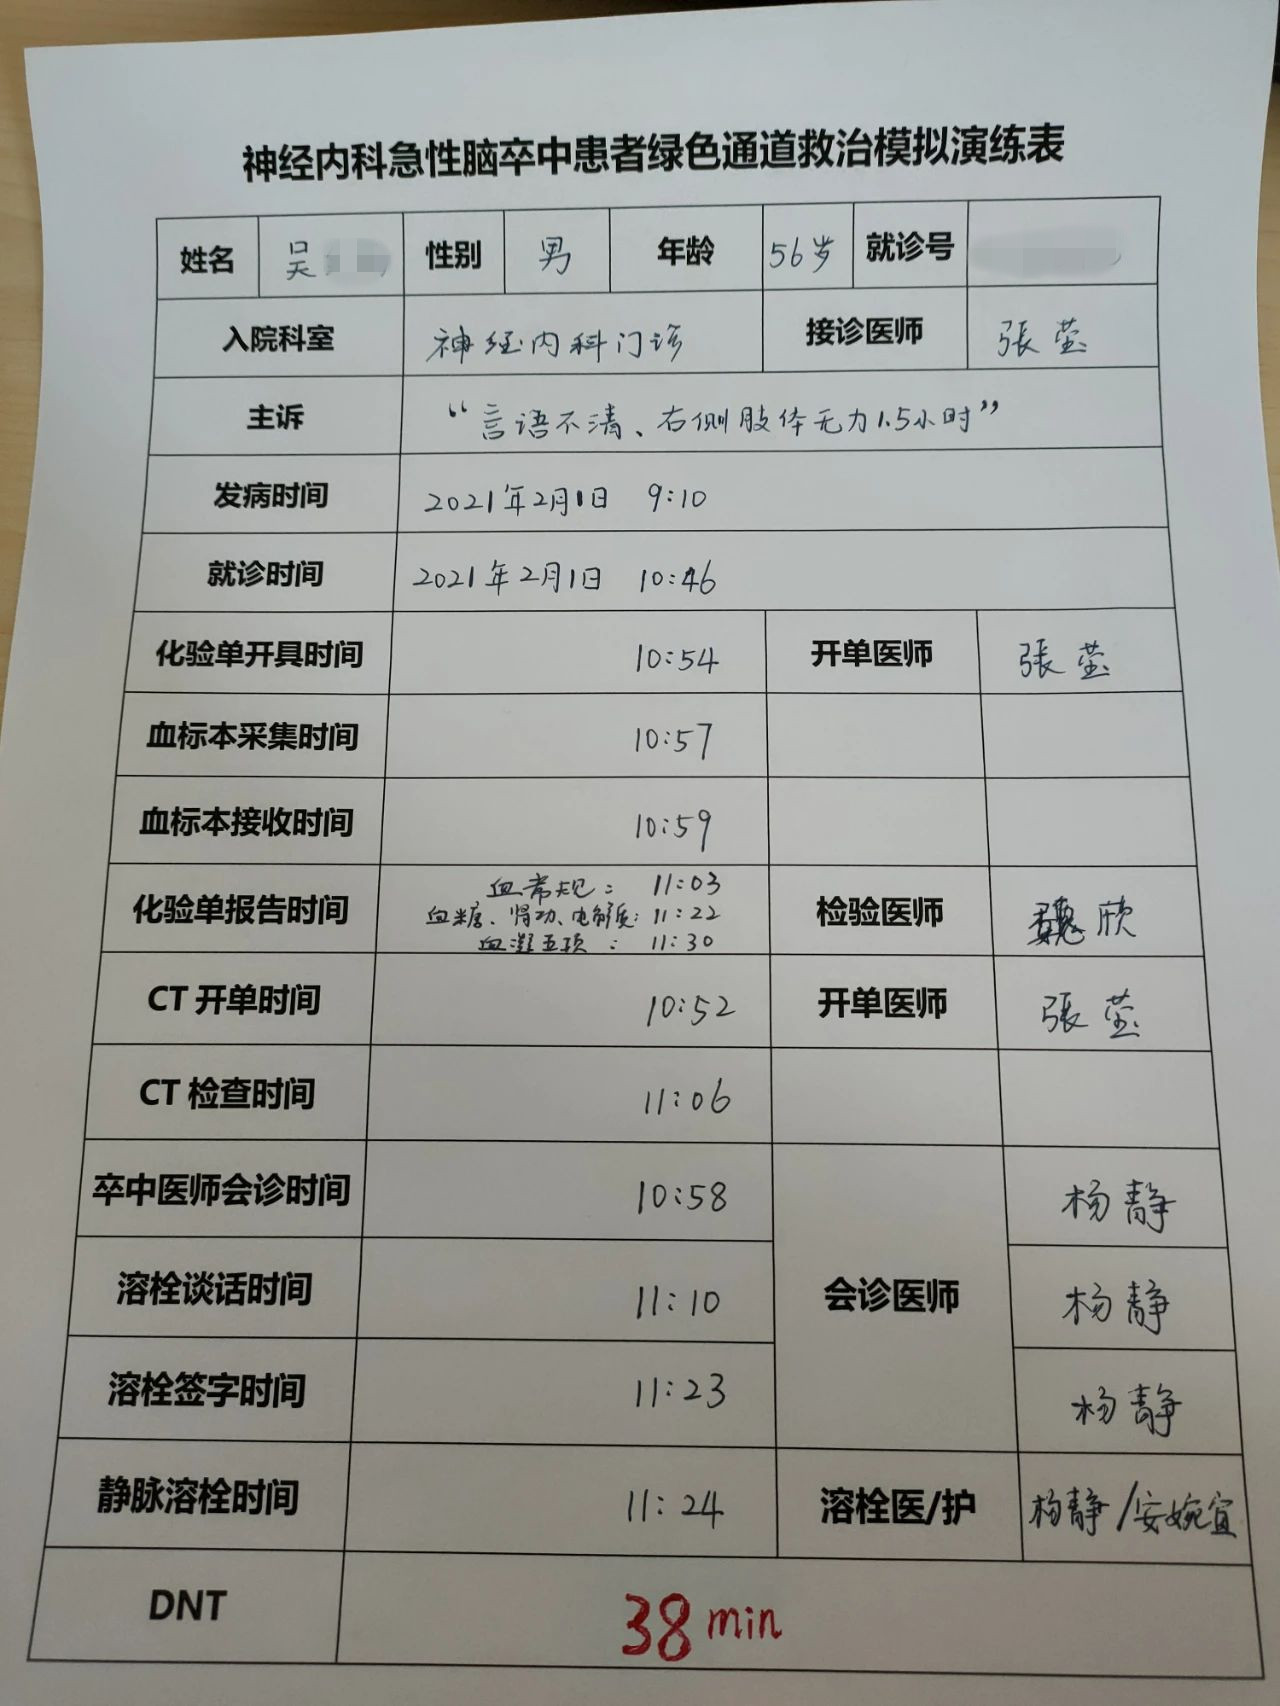 神经内科急性脑卒中患者绿色通道救治模拟演练表
姓名 吴 性别 男 年龄 56岁 就诊号
入院科室 神经内科门诊 接诊医师 張莹
主诉 “言语不清、右侧肢体无力1.5小时”
发病时间 2021年2月1日 9:10
就诊时间 2021年2月1日 10:46
化验单开具时间 10:54 开单医师 張莹
血标本采集时间 10:57
血标本接收时间 10:59
血常规: 11:03
化验单报告时间 血糖、肾功、电解质: 11:22 检验医师 魏欣
血凝五项: 11:30
CT 开单时间 10:52 开单医师 張莹
CT 检查时间 11:06
卒中医师会诊时间 10:58 杨静
溶栓谈话时间 11:10 会诊医师 杨静
溶栓签字时间 11:23 杨静
静脉溶栓时间 11:24 溶栓医/护 杨静/安婉宜
DNT 38min